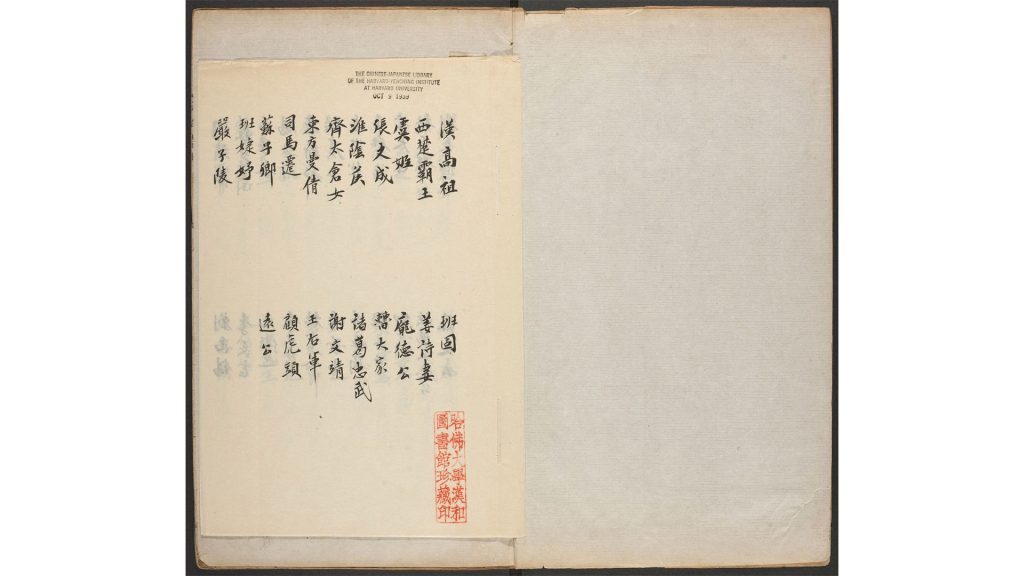 THE CHINESE-JAPANESE LIBRARY
OF THE HARVARD-YENCHING INSTITUTE
AT HARVARD UNIVERSITY
OCT 9 1939
漢高祖
西楚霸王
虞姬
張文成
淮陰矦
齊太倉女
東方曼倩
司馬遷
蘇子卿
班婕妤
嚴子陵
班固
姜詩妻
龐德公
曹大家
諸葛忠武
謝文靖
王右軍
顧虎頭
遠公
哈佛大學漢和
圖書館珍藏印